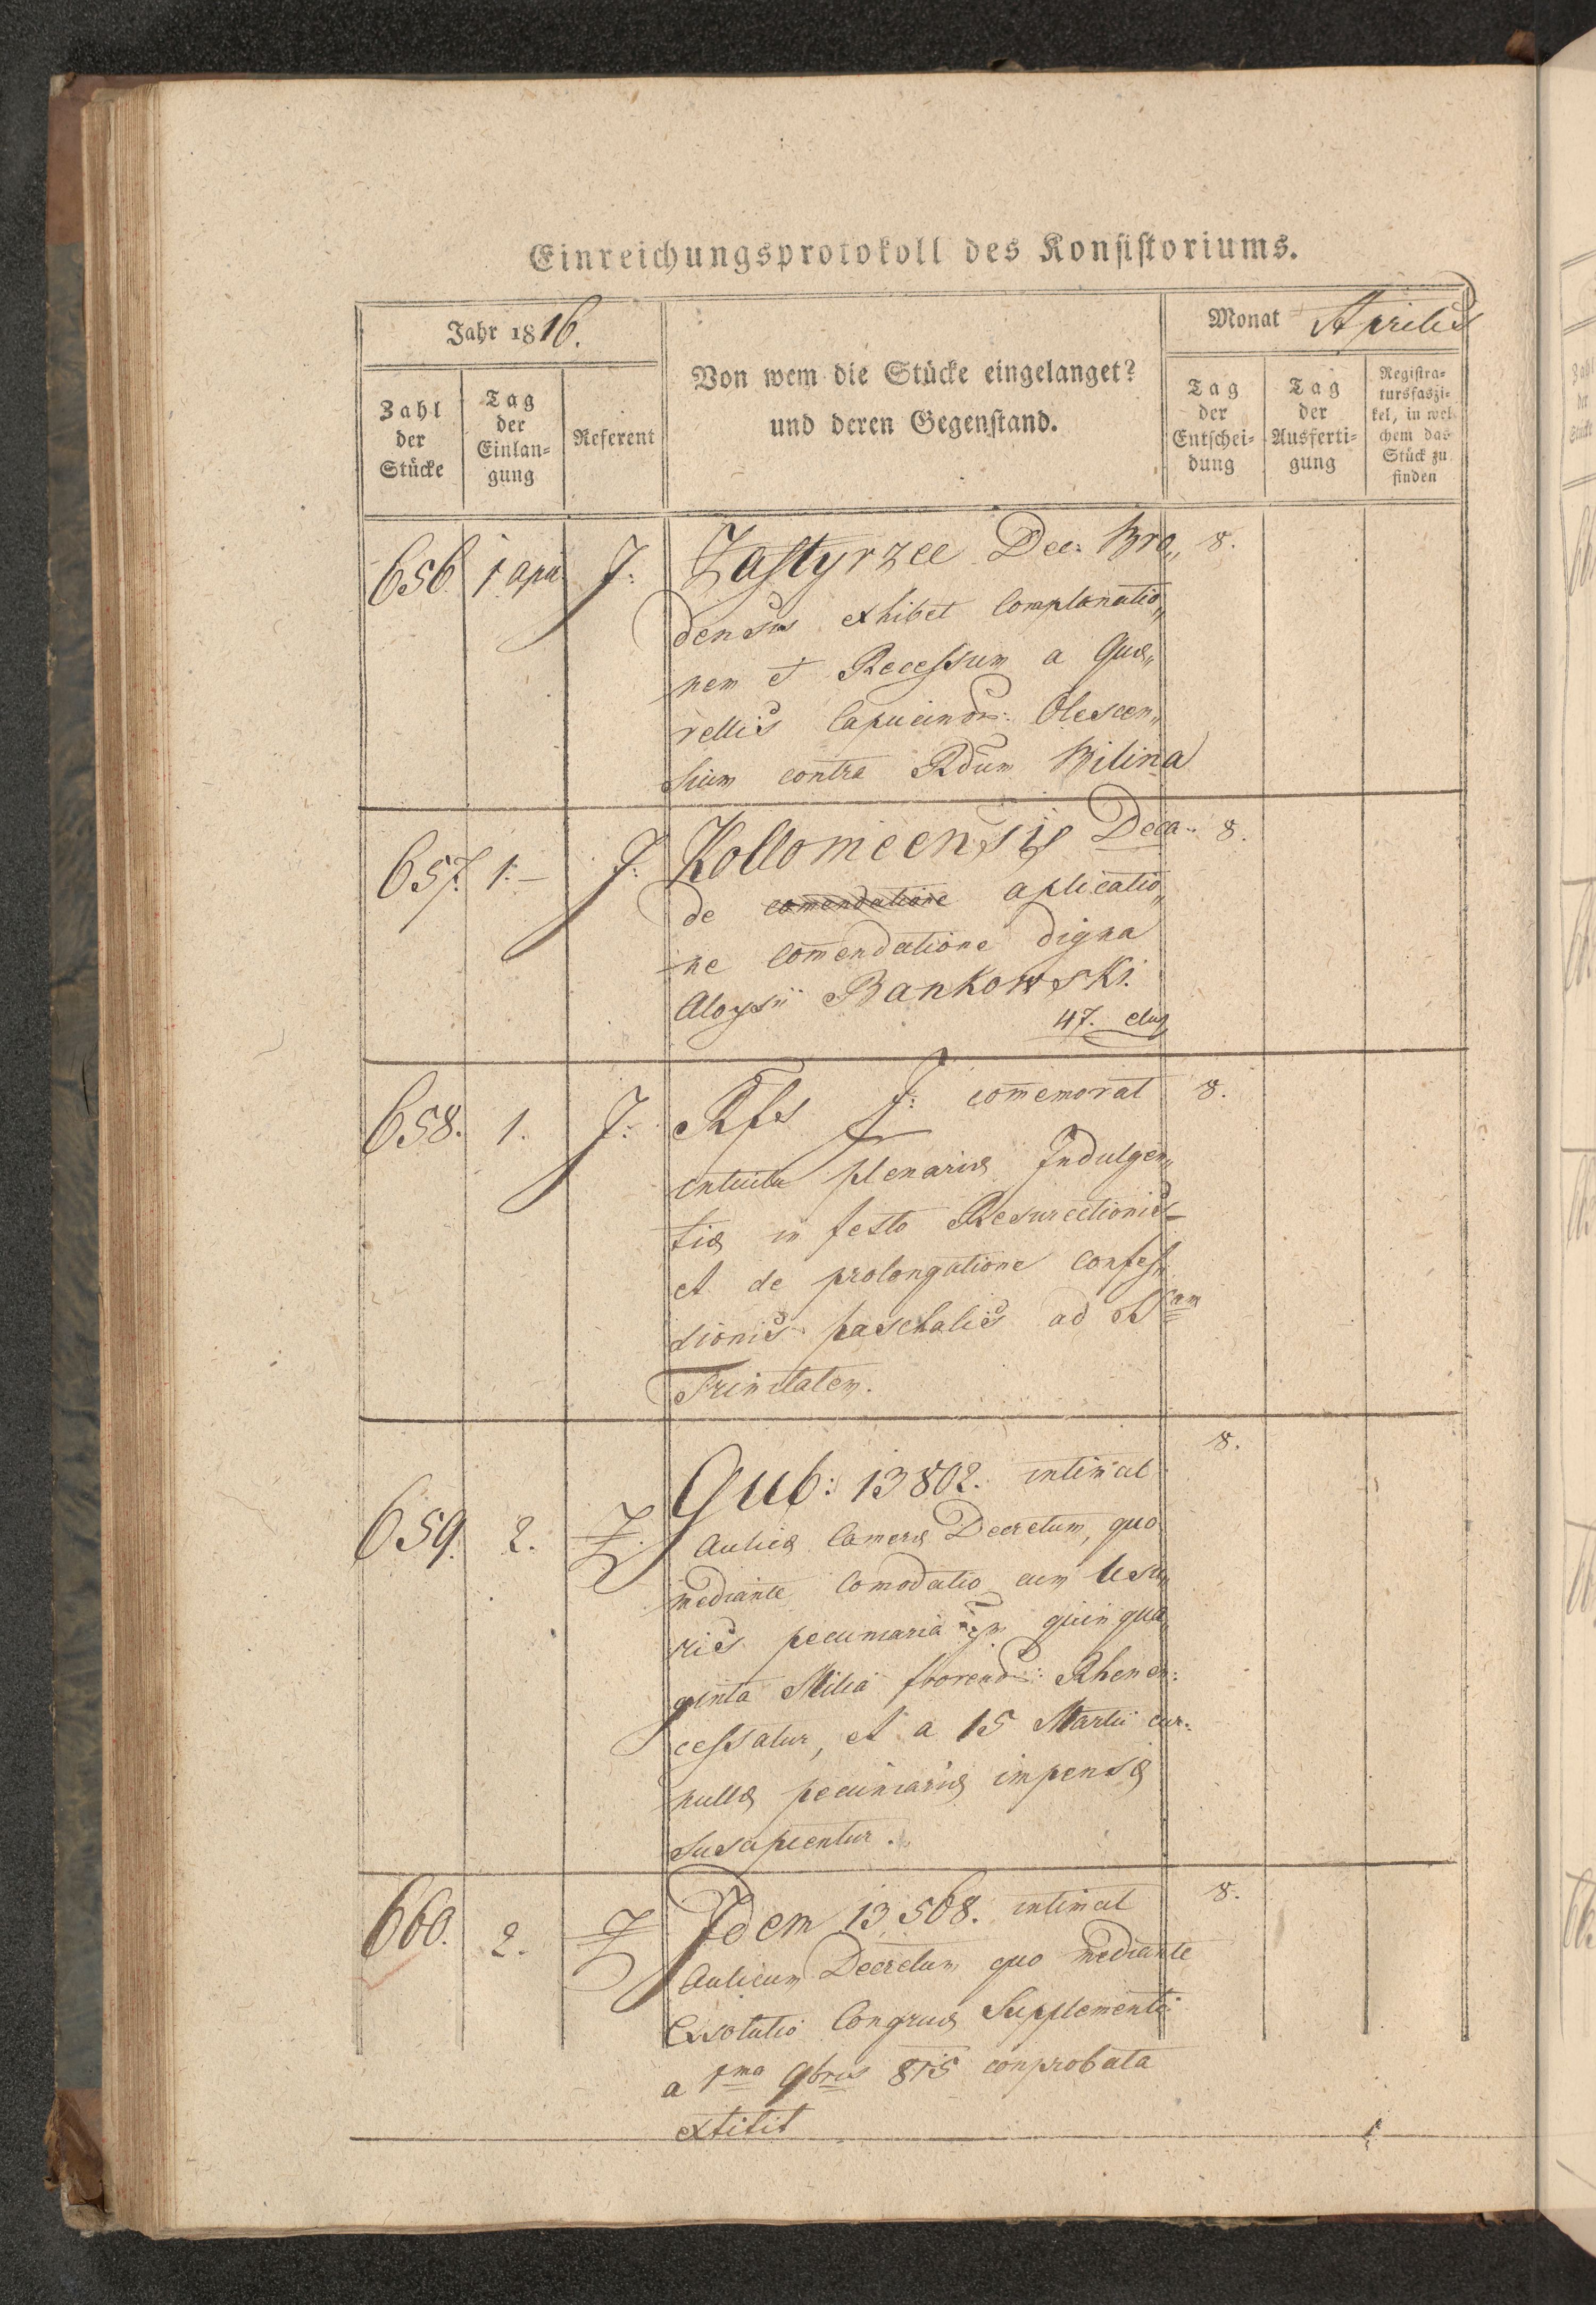 Einreichungsprotokoll des Konsistoriums.
Jahr 1816.
Monat Aprilis
Zahl der Stücke
Tag der Einlan=gung
Referent
Von wem die Stücke eingelanget?
und deren Gegenstand.
Tag der Entschei=dung
Tag der Ausferti=gung
Registra=tursfaszi=kel, in wel=chem das Stück zu finden
656 1 apr. J: Zastyrzec Dec: Bro„ 8.
densis exhibet Complanatio„
nem et Recessum a Quæ„
rellis Capucinor: Olescen„
sium contra Rdum Bilina
657. 1.– J: Kollomeensis Deca.. 8.
de comendatione aplicatio„
ne comendatione digna
Aloysii Bankowski.
47. elus
658. 1. J: Rfs J: comemorat 8.
intuitu plenariæ Indulgen„
tiæ in festo Resurectionis
et de prolongatione Confes„
sionis paschalis ad SSam
Trinitatem.
659. 2. Z. Gub: 13802. intimat 8.
Aulicæ Cameræ Decretum, quo
mediante Comodatio cum Usu„
ris pecuniaria quinqua„
ginta Milia florenor: Rhenen:
cessatur, et a 15 Martii cur.
nullæ pecuniariæ impensæ
suscipientur.
660. 2. Z Idem 13,568. intimat 8.
Aulicum Decretum quo mediante
Exsolutio Congruæ Supplementi
a 1ma 9bris 815 comprobata
extitit